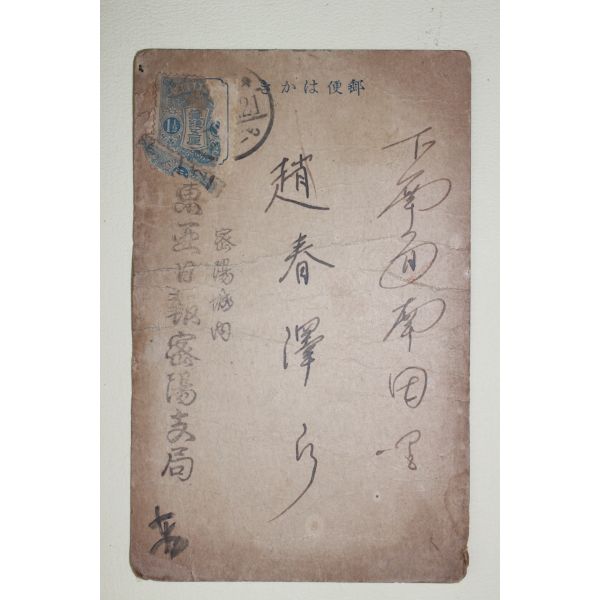 郵便はかき
下南面南田里
趙春澤
密陽城内
東亞日報密陽支局
21